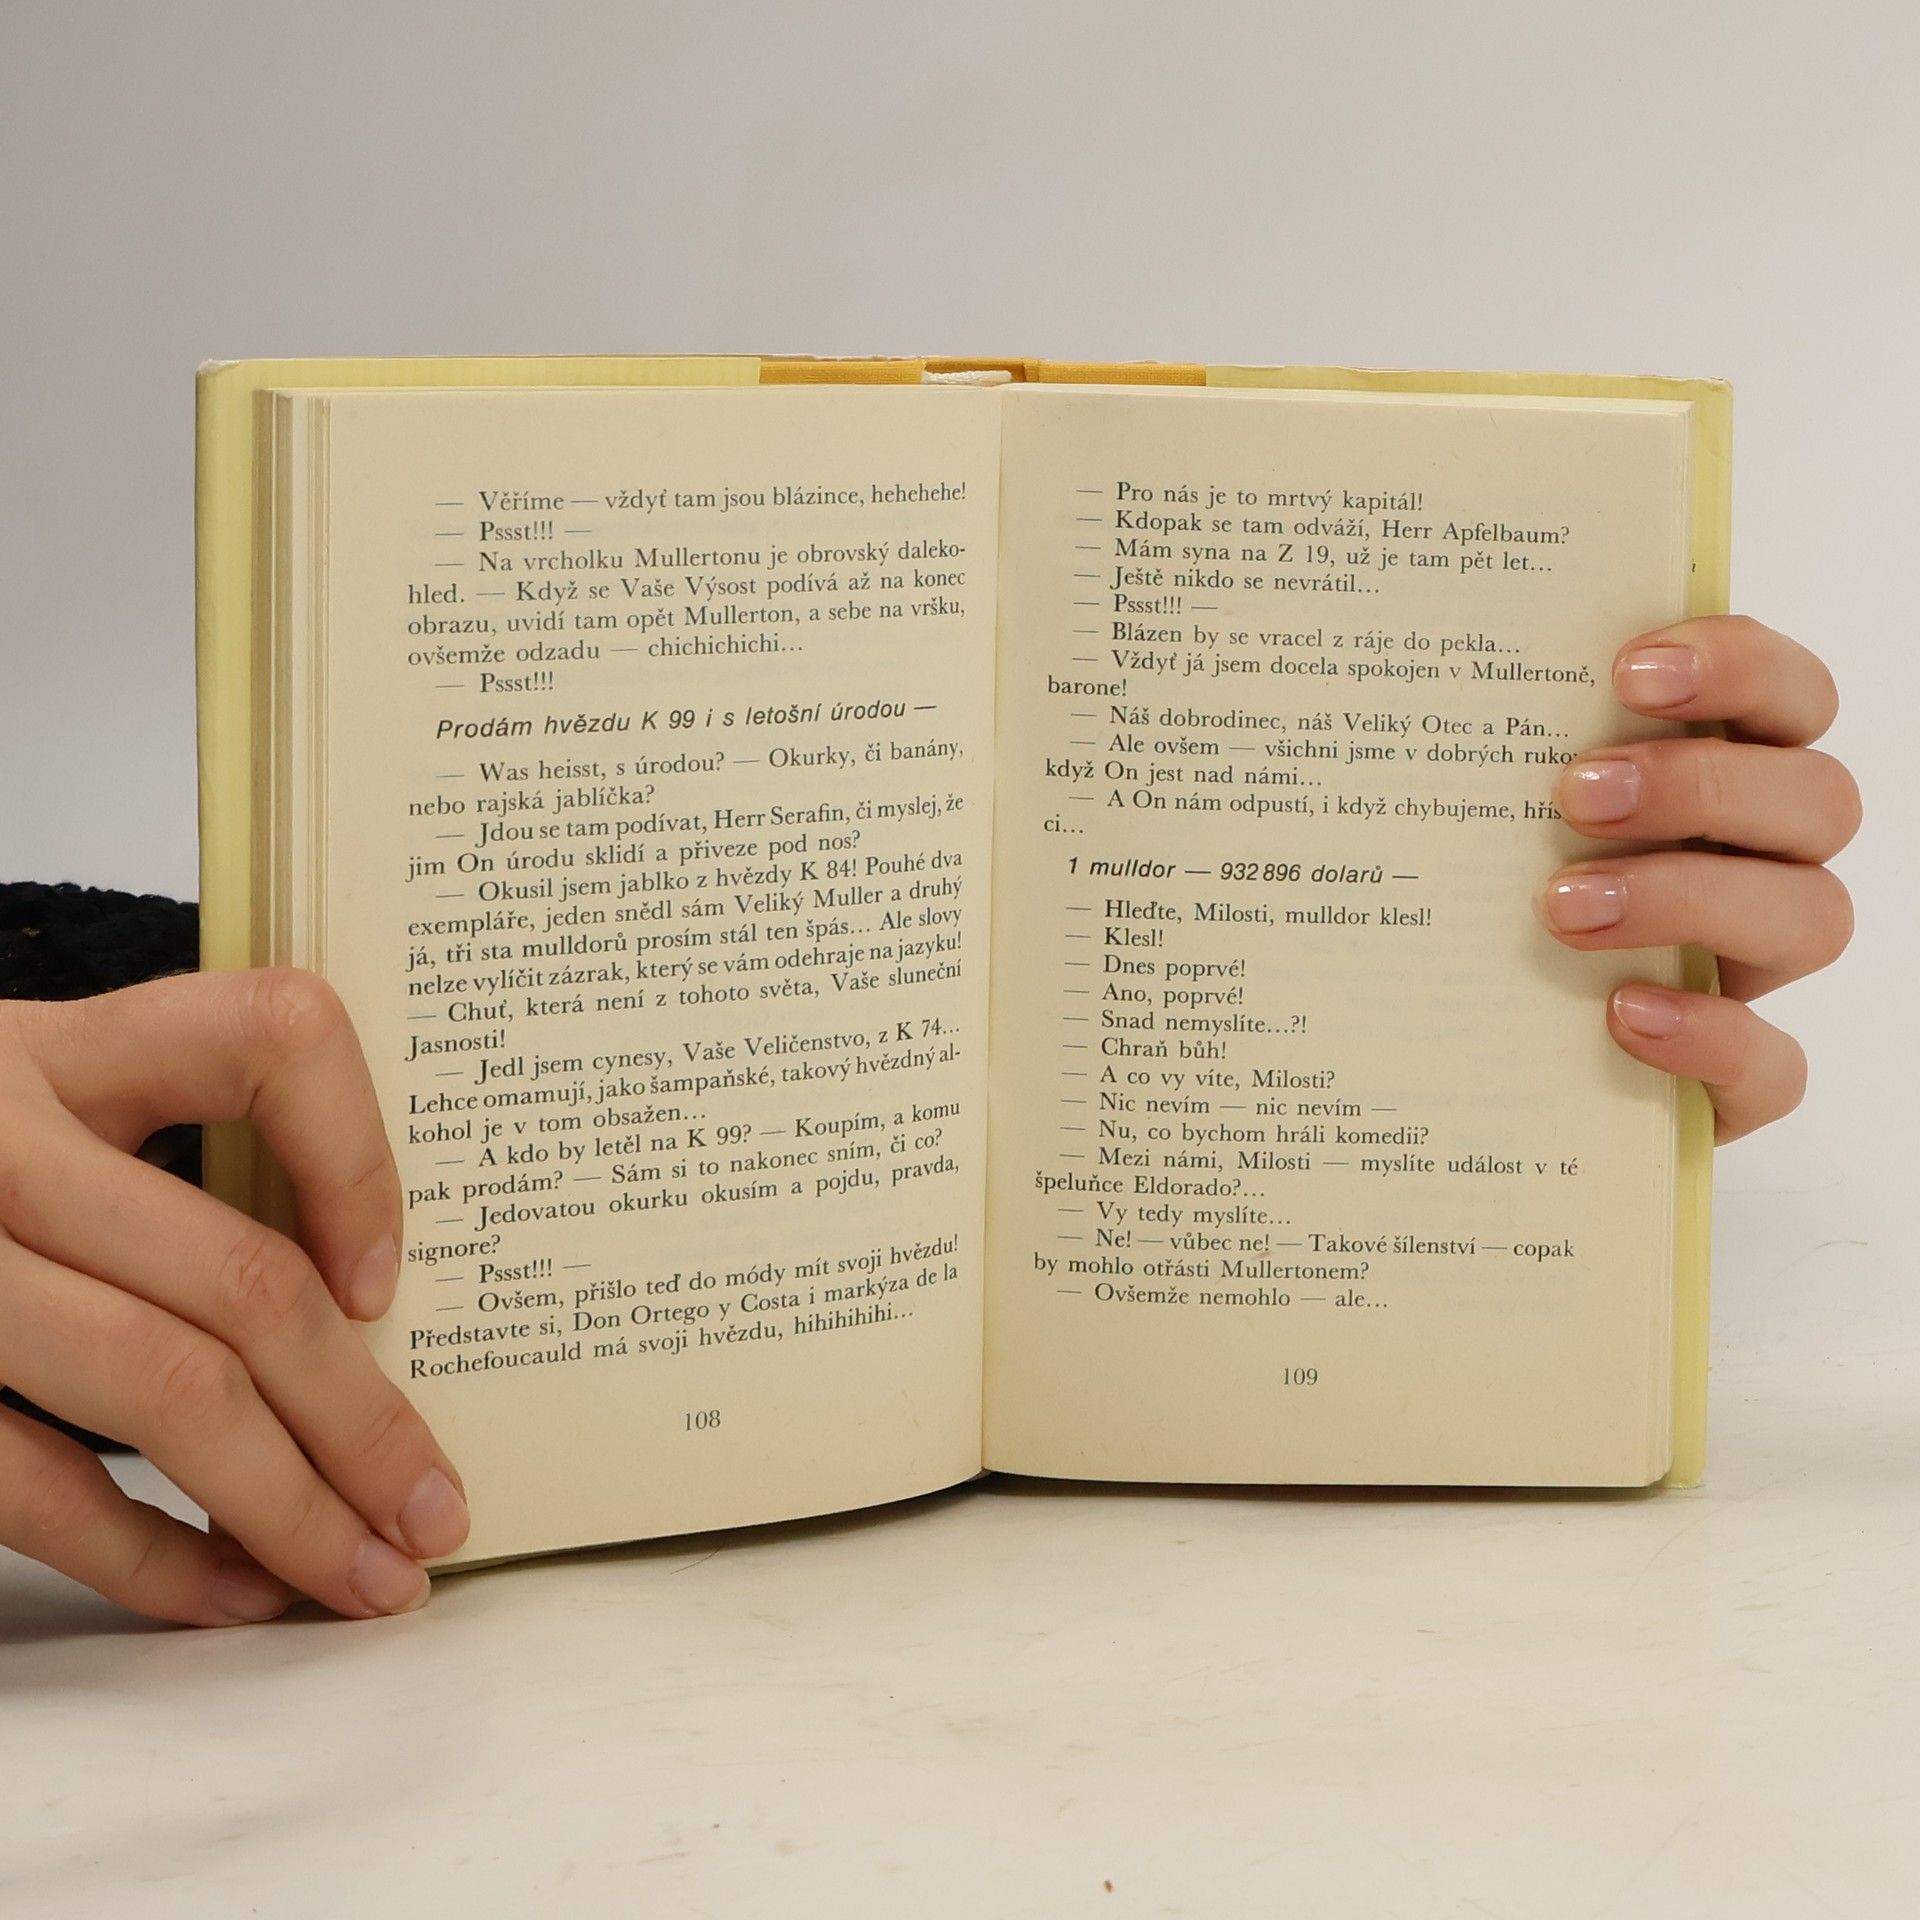 — Věříme — vždyť tam jsou blázince, hehehehe!
— Pssst!!! —
— Na vrcholku Mullertonu je obrovský daleko-
hled. — Když se Vaše Výsost podívá až na konec
obrazu, uvidí tam opět Mullerton, a sebe na vršku,
ovšemže odzadu — chichichichi...
— Pssst!!!
Prodám hvězdu K 99 i s letošní úrodou —
— Was heisst, s úrodou? — Okurky, či banány,
nebo rajská jablíčka?
— Jdou se tam podívat, Herr Serafin, či myslej, že
jim On úrodu sklidí a přiveze pod nos?
— Okusil jsem jablko z hvězdy K 84! Pouhé dva
exempláře, jeden snědl sám Veliký Muller a druhý
já, tři sta mulldorů prosím stál ten špás... Ale slovy
nelze vylíčit zázrak, který se vám odehraje na jazyku!
— Chuť, která není z tohoto světa, Vaše sluneční
Jasnosti!
— Jedl jsem cynesy, Vaše Veličenstvo, z K 74...
Lehce omamují, jako šampaňské, takový hvězdný al-
kohol je v tom obsažen...
— A kdo by letěl na K 99? — Koupím, a komu
pak prodám? — Sám si to nakonec sním, či co?
— Jedovatou okurku okusím a pojdu, pravda,
signore?
— Pssst!!! —
— Ovšem, přišlo teď do módy mít svoji hvězdu!
Představte si, Don Ortego y Costa i markýza de la
Rochefoucauld má svoji hvězdu, hihihihihi...
108
— Pro nás je to mrtvý kapitál!
— Kdopak se tam odváží, Herr Apfelbaum?
— Mám syna na Z 19, už je tam pět let...
— Ještě nikdo se nevrátil...
— Pssst!!! —
— Blázen by se vracel z ráje do pekla...
— Vždyť já jsem docela spokojen v Mullertoně,
barone!
— Náš dobrodinec, náš Veliký Otec a Pán...
— Ale ovšem — všichni jsme v dobrých
když On jest nad námi...
— A On nám odpustí, i když chybujeme,
ci...
1 mulldor — 932 896 dolarů —
— Hleďte, Milosti, mulldor klesl!
— Klesl!
— Dnes poprvé!
— Ano, poprvé!
— Snad nemyslíte...?!
— Chraň bůh!
— A co vy víte, Milosti?
— Nic nevím — nic nevím —
— Nu, co bychom hráli komedii?
— Mezi námi, Milosti — myslíte událost v té
špeluňce Eldorado?...
— Vy tedy myslíte...
— Ne! — vůbec ne! — Takové šílenství — copak
by mohlo otřásti Mullertonem?
— Ovšemže nemohlo — ale...
109